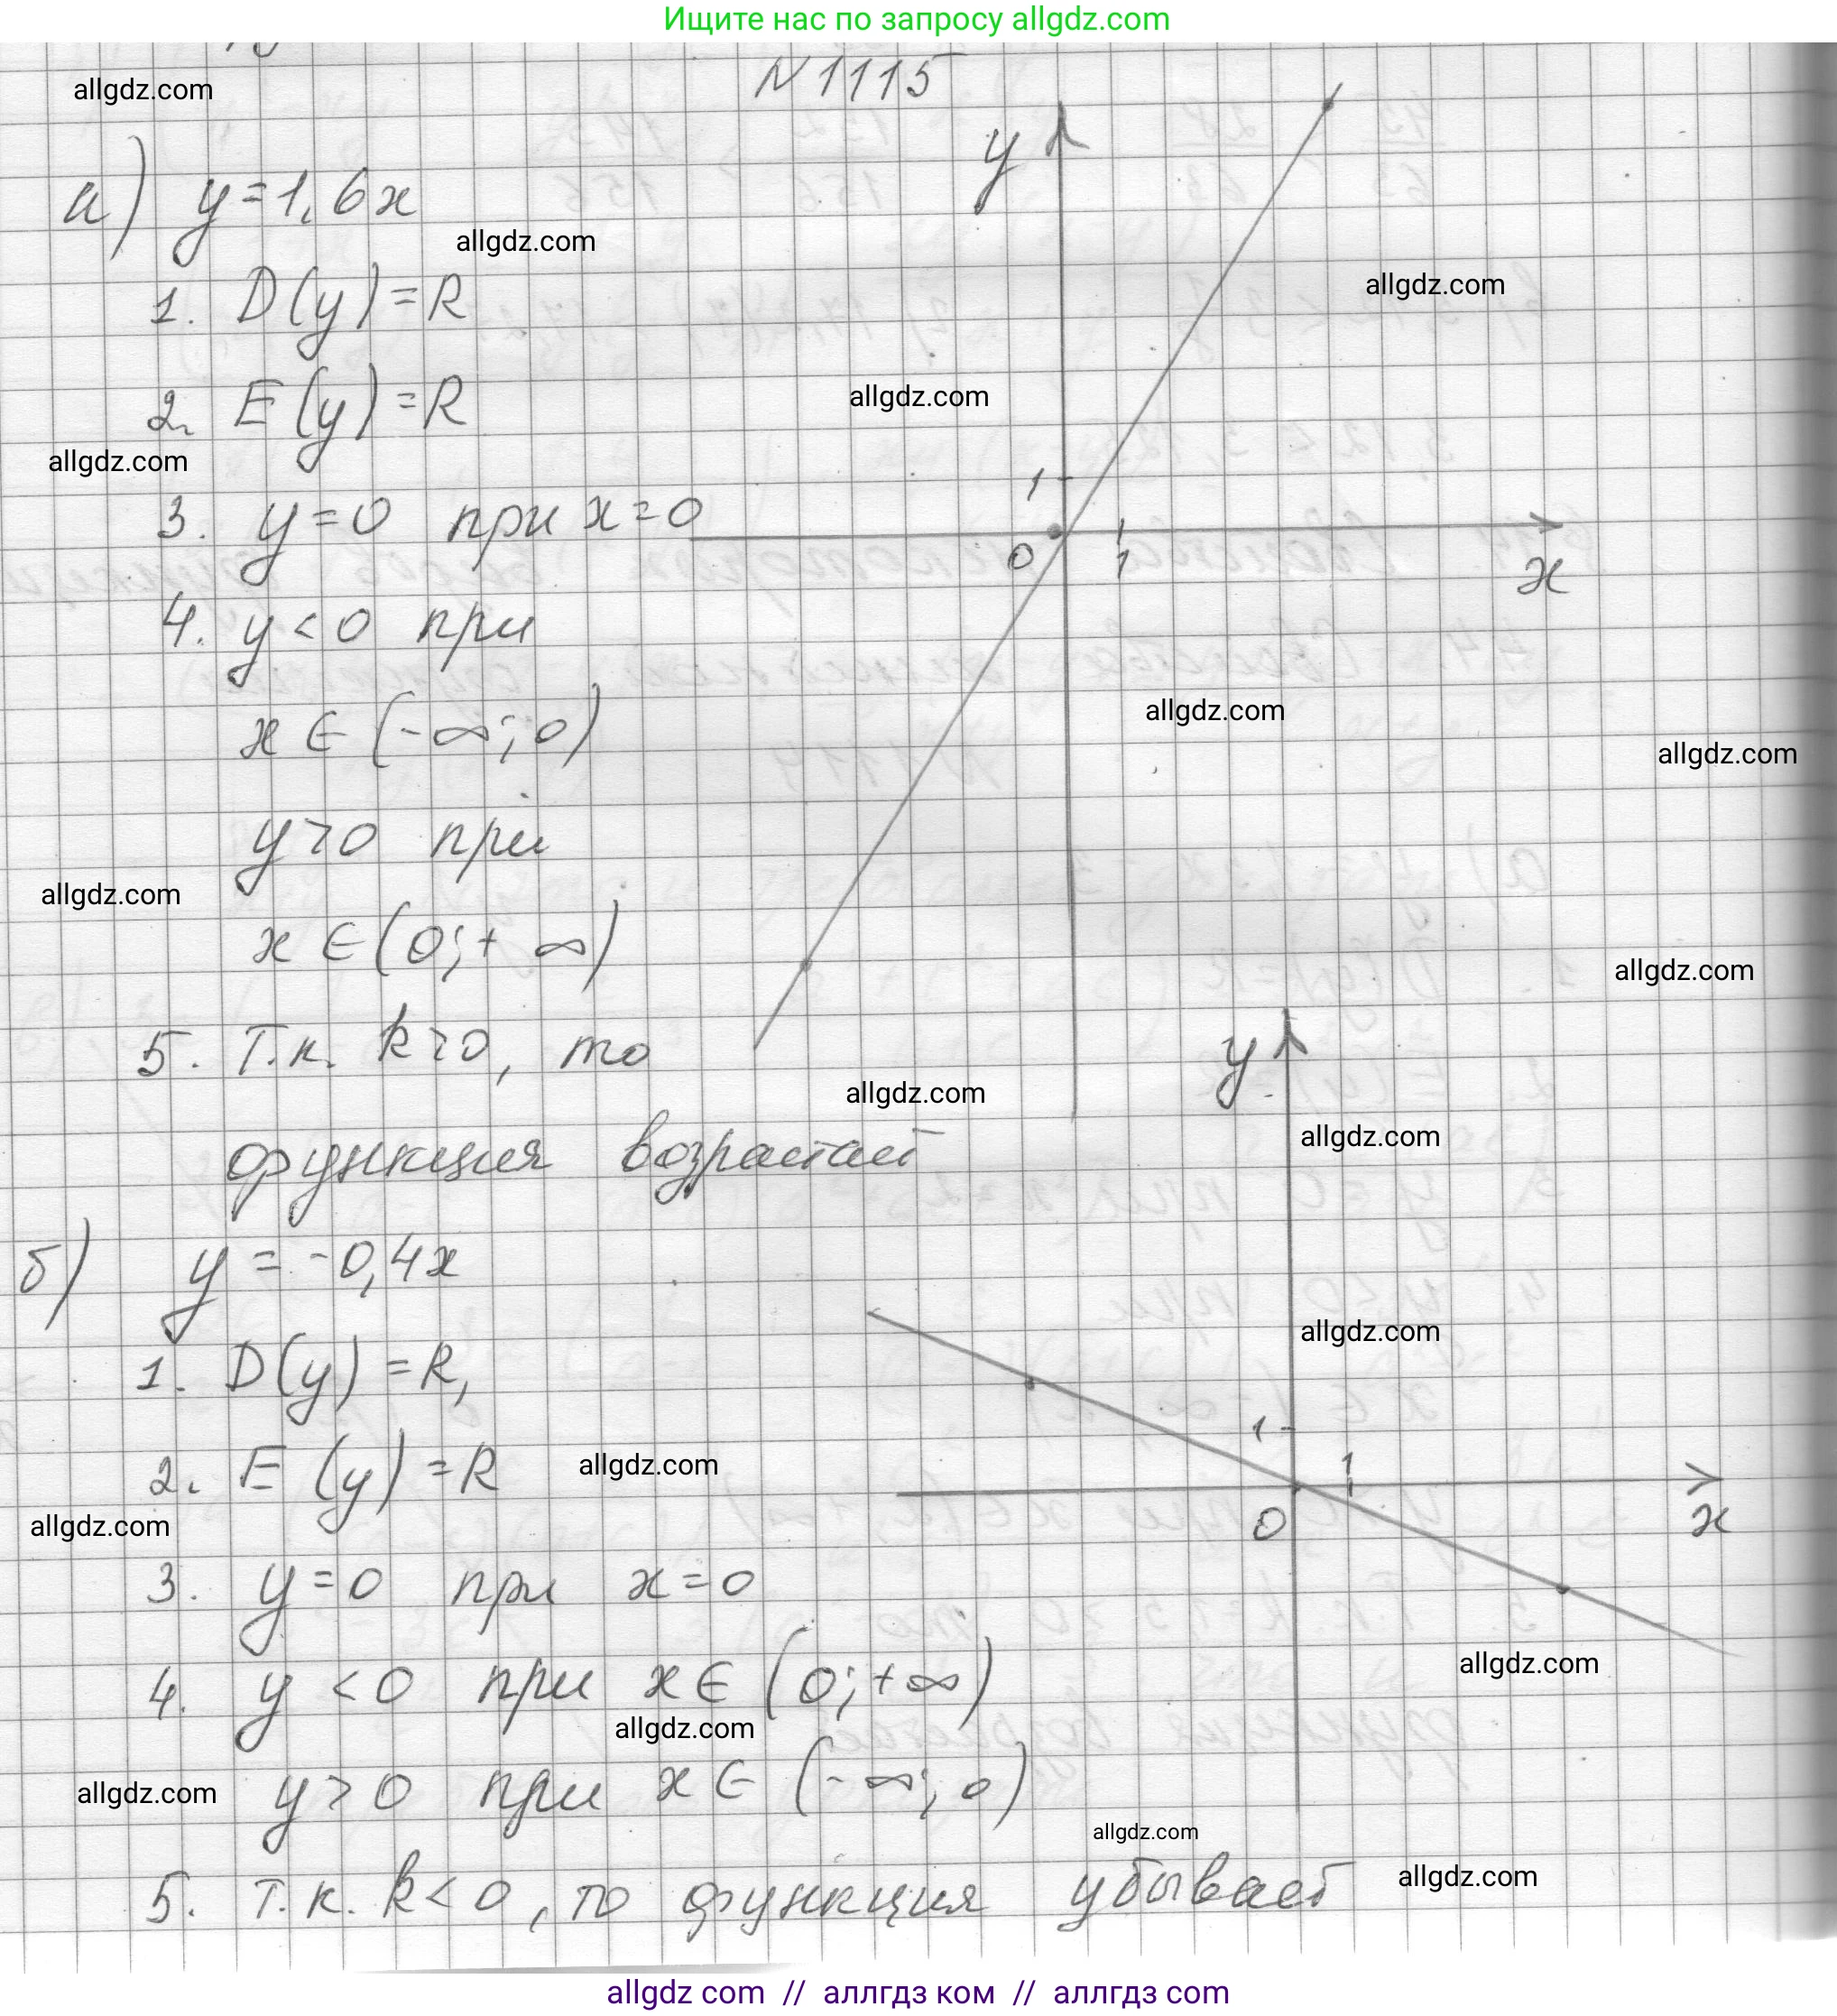 Ищите нас по запросу allgdz.com
N 1115
allgdz.com
а) y=1,6x
allgdz.com
1. D(y)=R
allgdz.com
2. E(y)=R
allgdz.com
allgdz.com
3. y=0 при x=0
4. y<0 при
x∈(-∞;0)
allgdz.com
allgdz.com
y>0 при
allgdz.com
x∈(0;+∞)
allgdz.com
5. Т.к. k>0, то
allgdz.com
функция возрастает
y
1
0
1
x
б) y=-0,4x
allgdz.com
allgdz.com
1. D(y)=R,
2. E(y)=R
allgdz.com
allgdz.com
3. y=0 при x=0
4. y<0 при x∈(0;+∞)
allgdz.com
allgdz.com
y>0 при x∈(-∞;0)
allgdz.com
allgdz.com
5. Т.к. k<0, то функция убывает
allgdz.com
y
1
1
0
x
allgdz com // аллгдз ком // аллгдз com